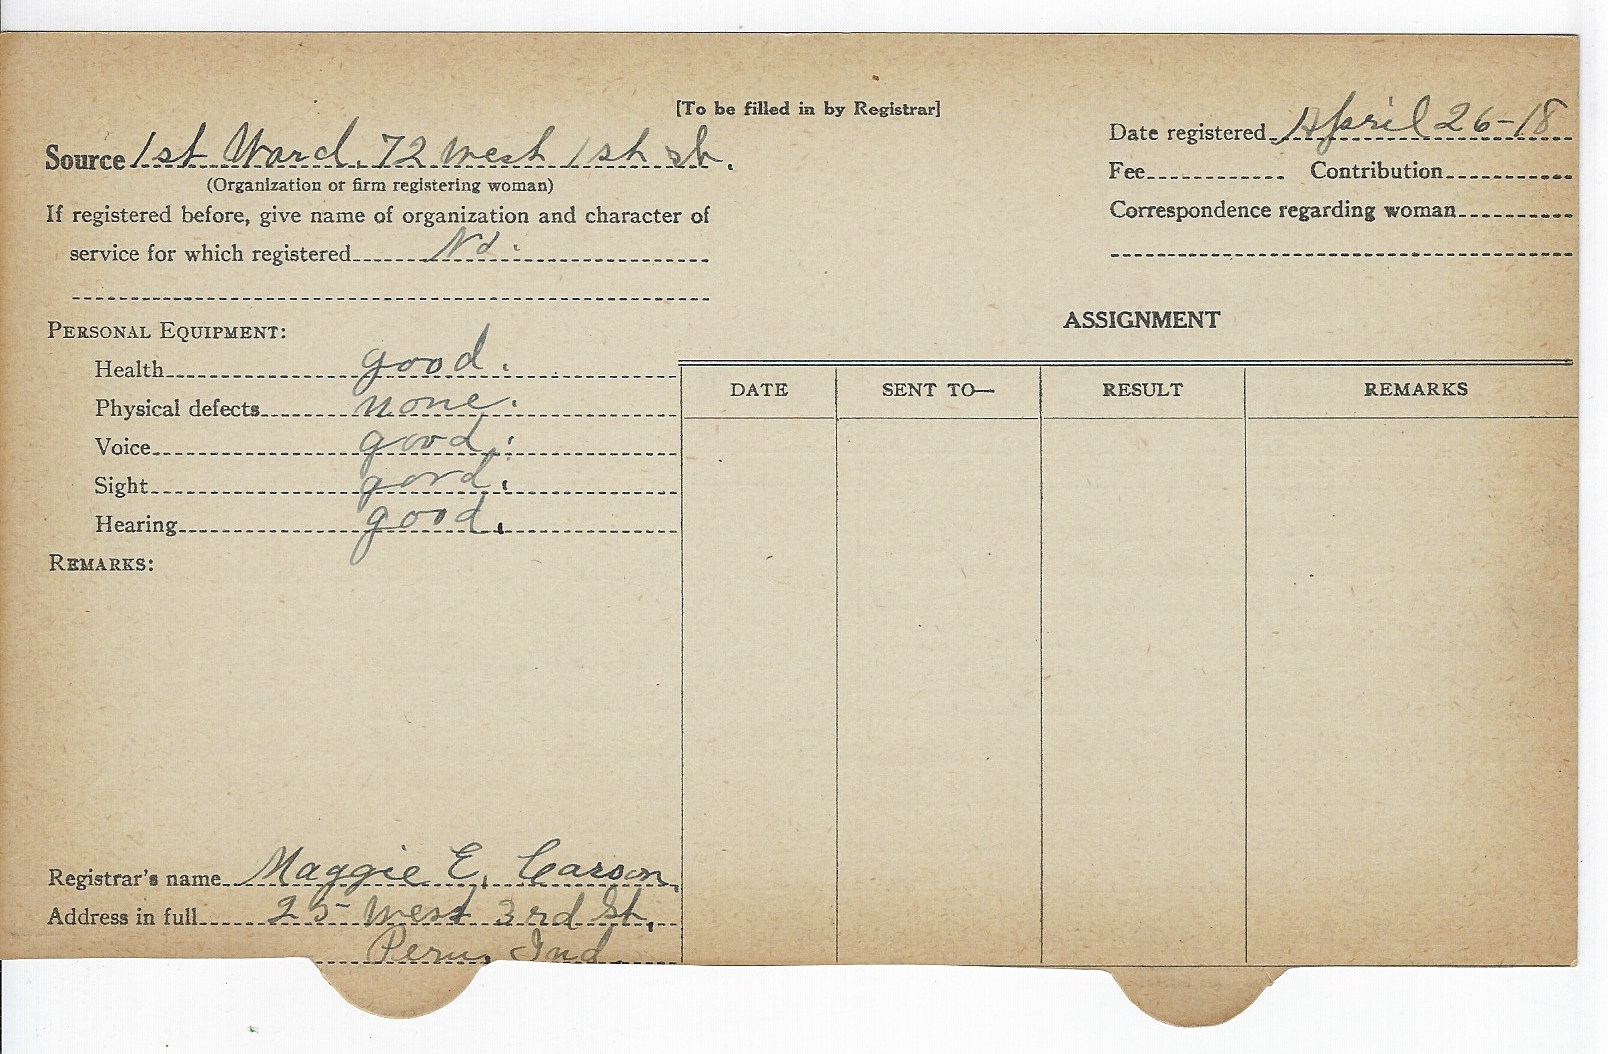 [To be filled in by Registrar]
Source 1st Ward. 72 West 1st st.
(Organization or firm registering woman)
If registered before, give name of organization and character of
service for which registered No.
Date registered April 26-18
Fee Contribution
Correspondence regarding woman
PERSONAL EQUIPMENT:
Health good.
Physical defects none.
Voice good.
Sight good.
Hearing good.
REMARKS:
ASSIGNMENT
DATE SENT TO— RESULT REMARKS
Registrar's name Maggie E. Carson.
Address in full 25 West 3rd St.
Peru, Ind.